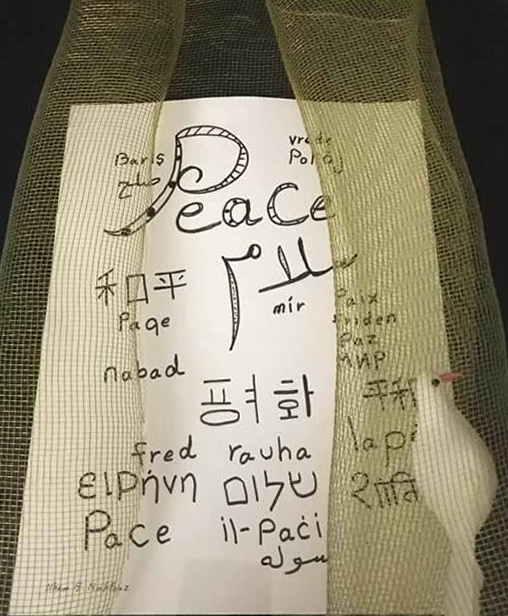 Barış
صلح
vrede
Pokój
Peace
سلام
和平
mir
Paqe
Paix
friden
Paz
МИР
nabad
평화
平和
lapè
fred rauha
ειρήνη שלום
Pace il-Paċi
سوله